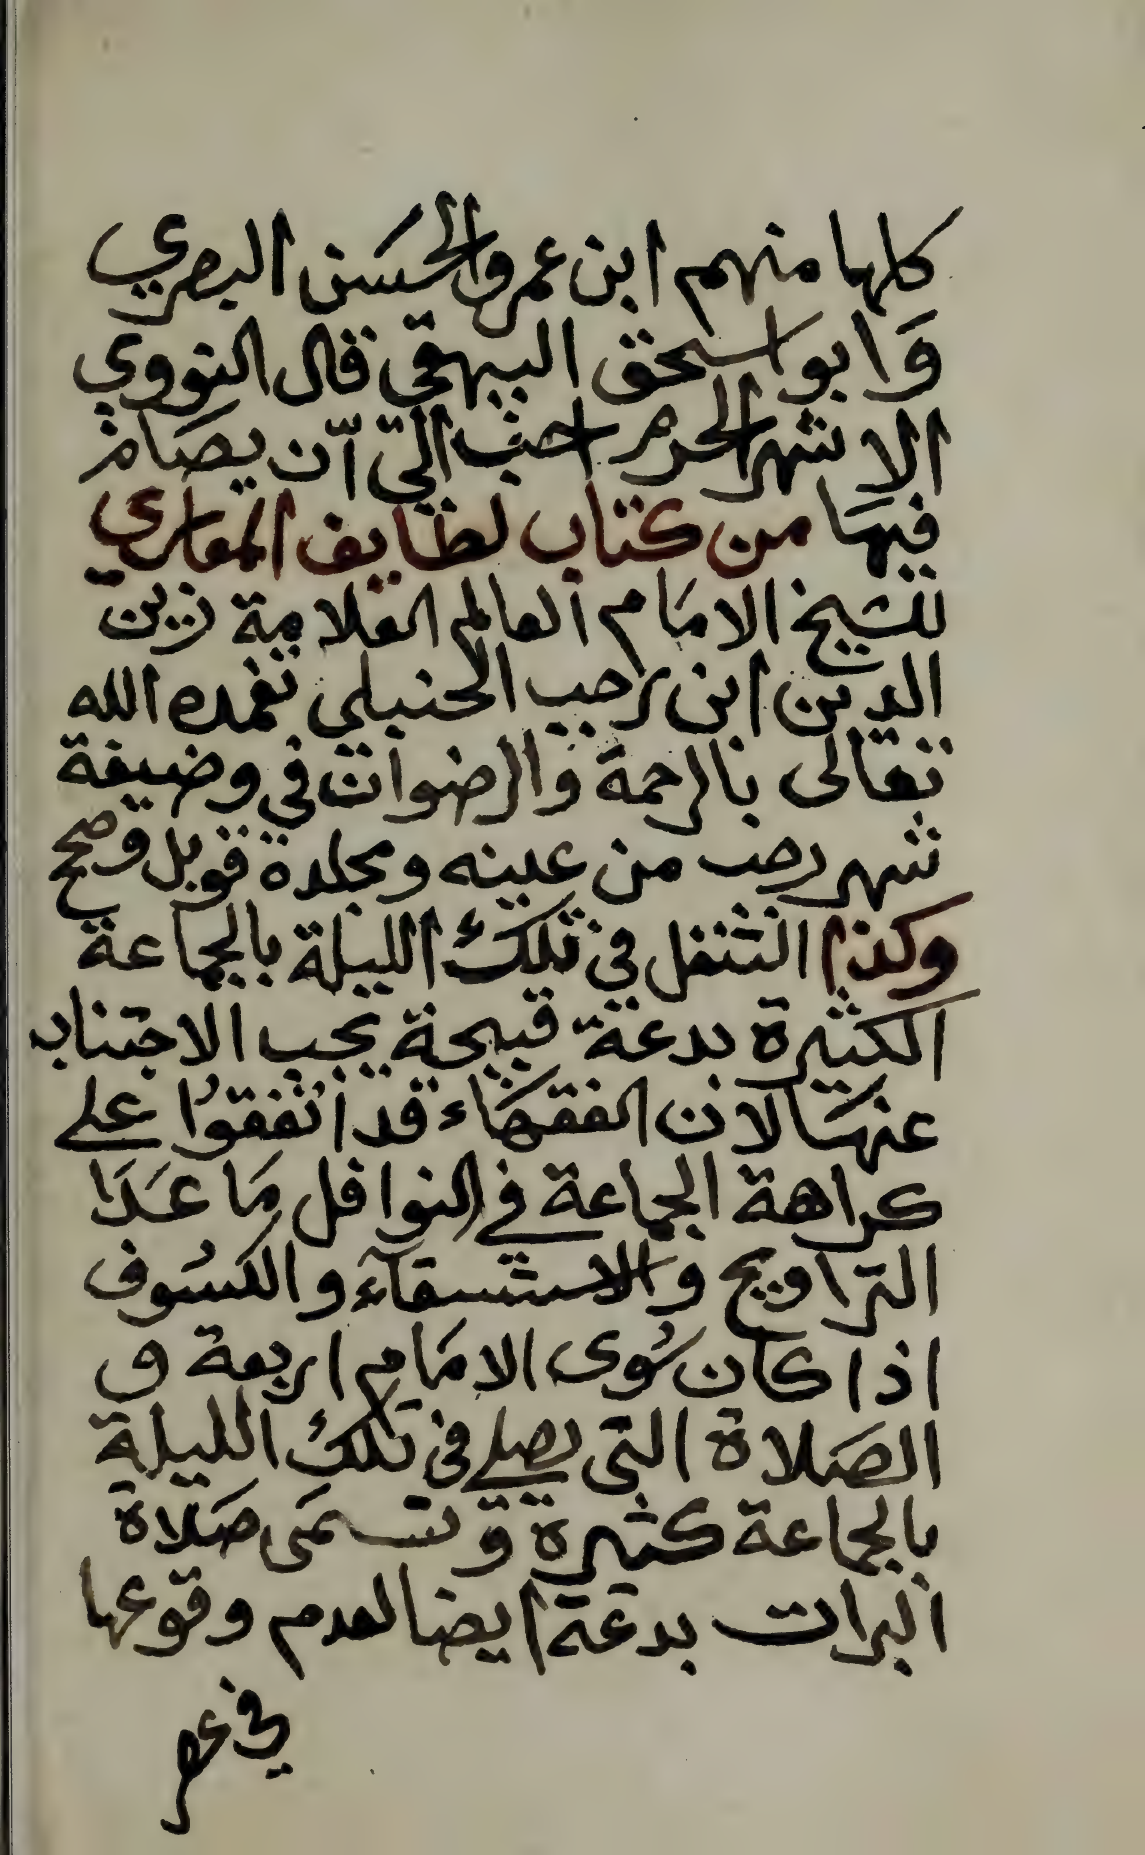 كلها منهم ابن عمر والحسن البصري
وَابو اسحق البيهقي قال النووي
الاشهر الحرم احب اليّ آن يصَام
فيهَا من كتاب لطايف المعاري
للشيخ الامَام العالم العلامة زين
الدين ابن رجب الحنبلي تغمده الله
تعالى بالرحمة والرضوان في وضيفة
شهر رجب من عينه ومجلدة قوبل وصح
وكذا التنفل في تلك الليلة بالجماعة
الكثيرة بدعة قبيحة يجب الاجتناب
عنهَا لان الفقهَاء قد اتفقوُا على
كراهة الجماعة في النوافل مَا عَدَا
التراويح والاستسقآء والكسُوف
اذا كان سُوى الامَام اربعة و
الصَلاة التى يصلى فى تلك الليلة
بالجماعة كثيرة وتسمَى صَلاة
البرات بدعة ايضا لعدم وقوعها
في عصر